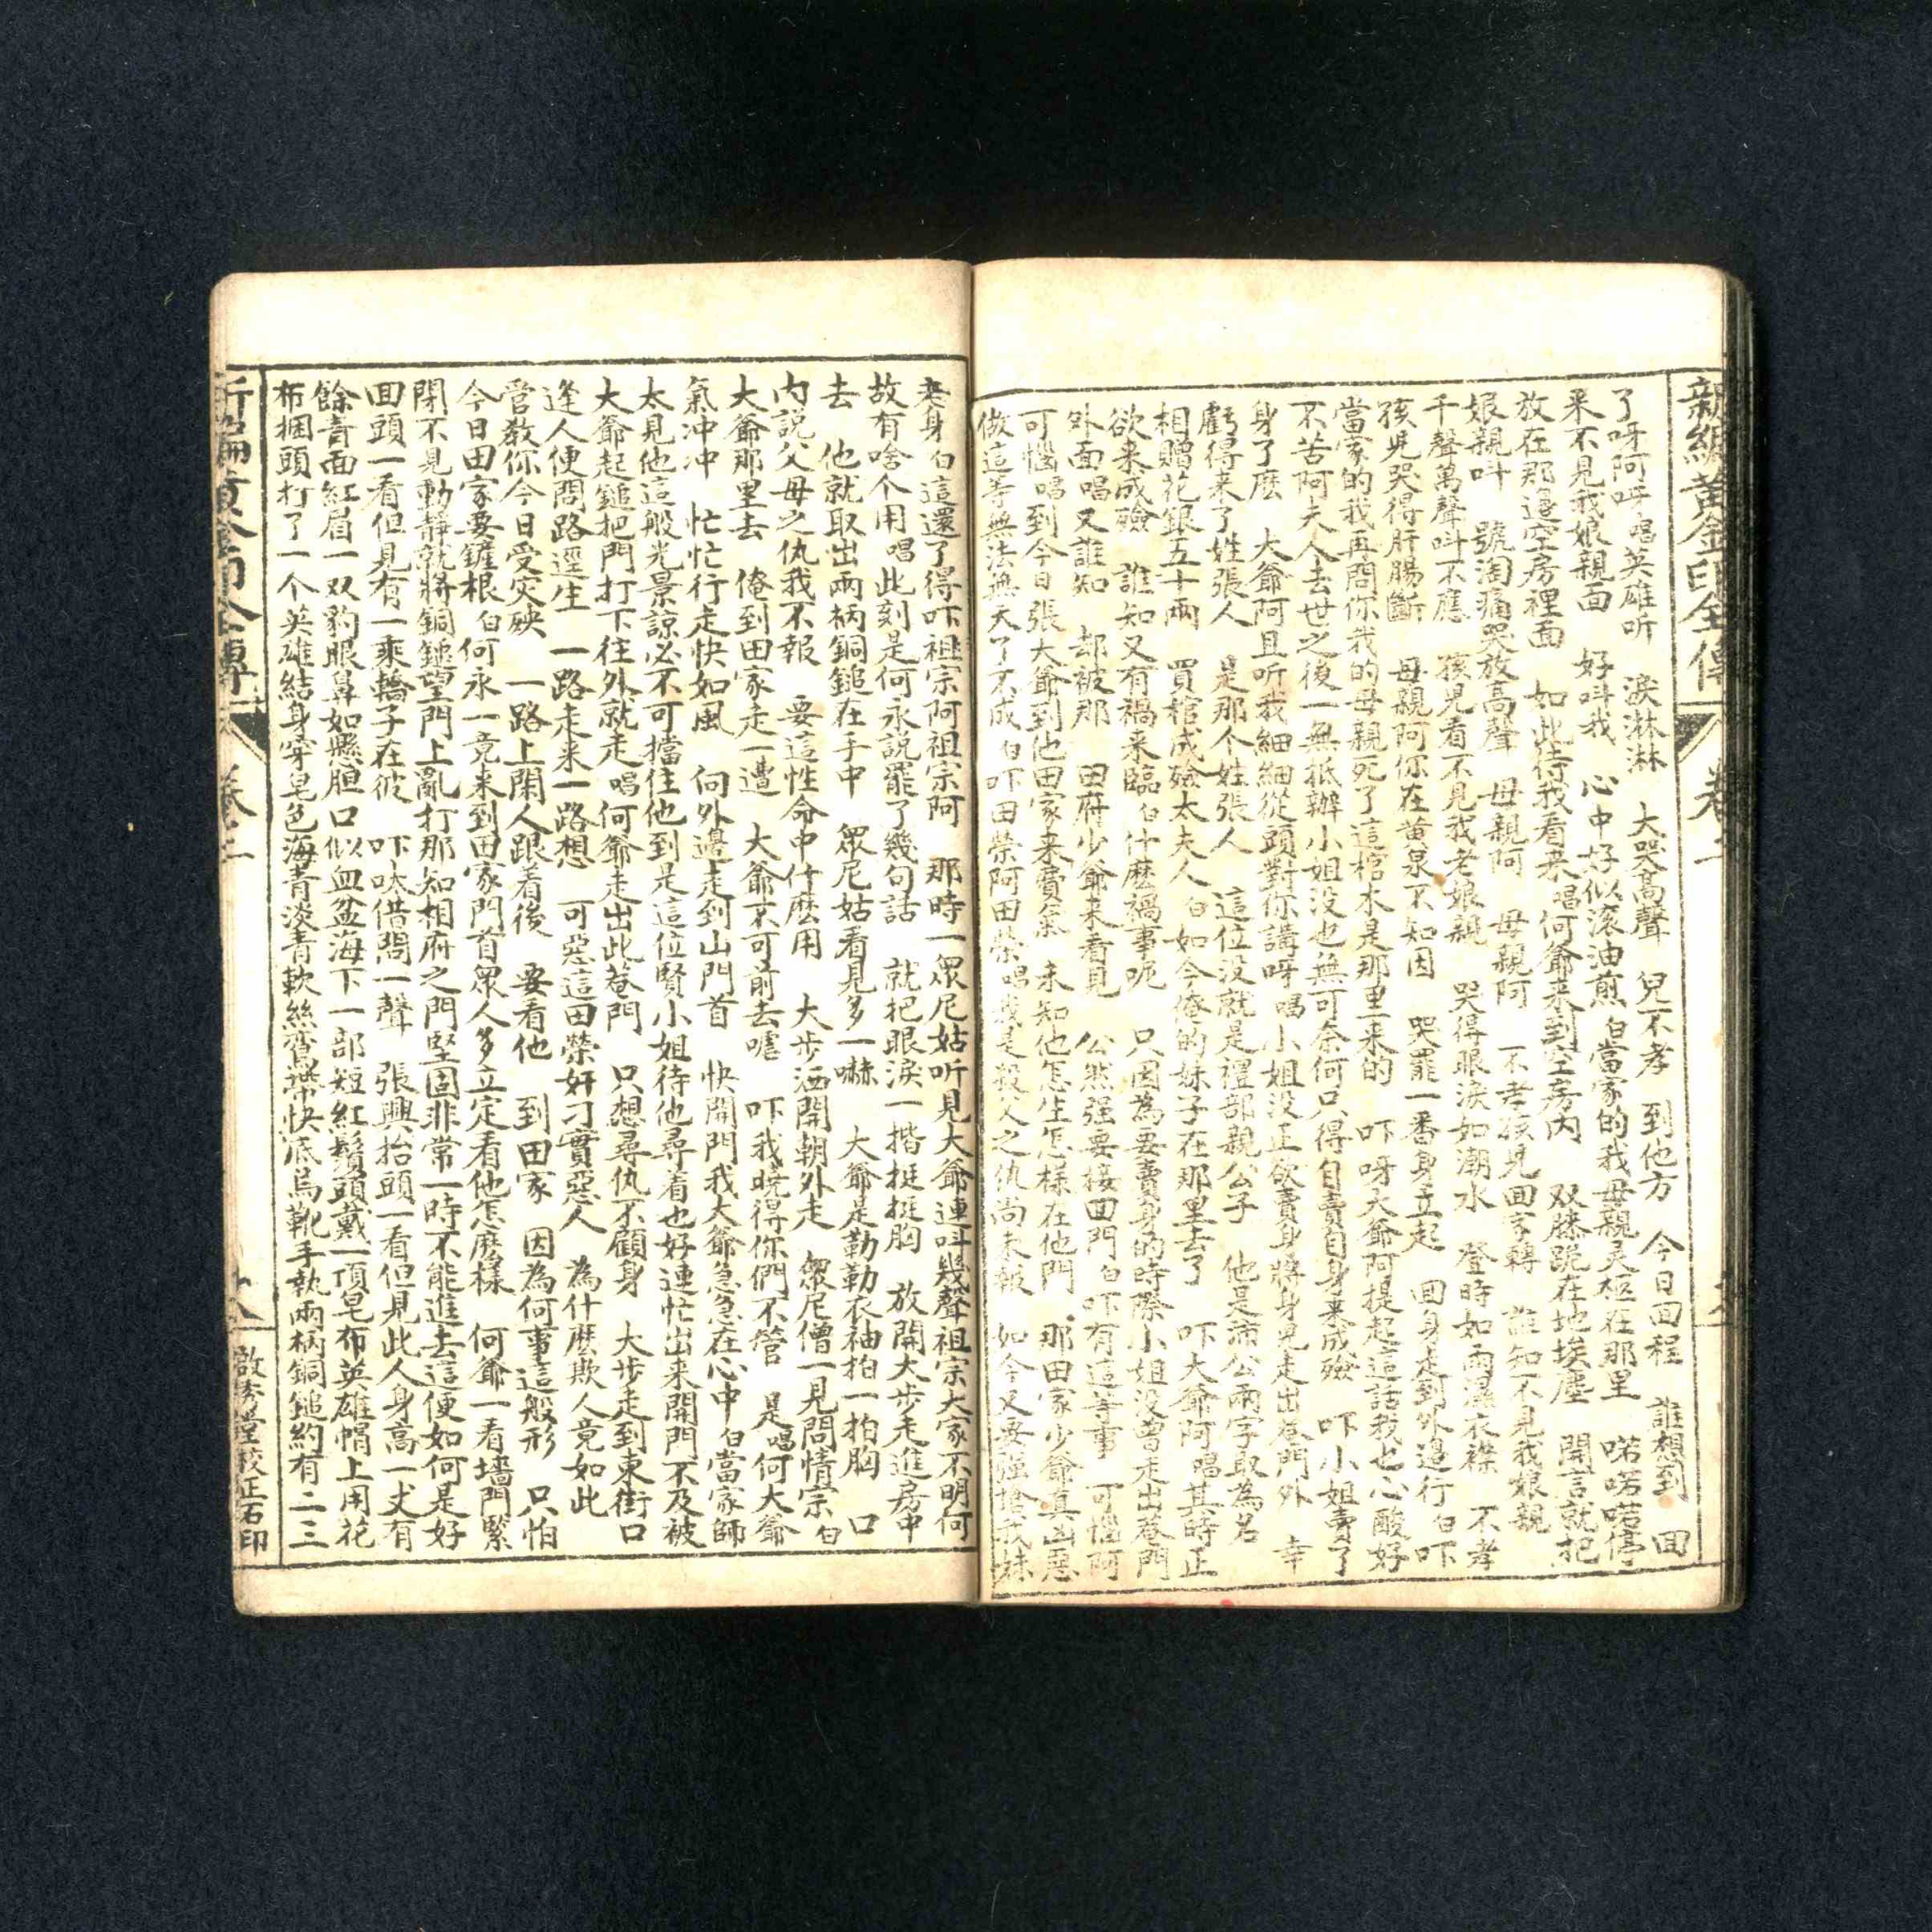 新編黃金印全傳 卷二
了呀阿呼 唱英雄听 淚淋淋 大哭高聲 兒不孝 到他方 今日回程 誰想到 回
来不見我娘親面 好呌我 心中好似滾油煎 白當家的我母親灵柩在那里 喏喏喏停
放在那邉空房裡面 如此待我看来 唱何爺来到空房内 双膝跪在地埃塵 開言就把
娘親呌 號淘痛哭放高聲 母親阿 母親阿 不孝孩児回家轉 誰知不見我娘親
千聲萬聲呌不應 孩児看不見我老娘親 哭得眼淚如潮水 登時如雨濕衣襟 不孝
孩児哭得肝腸斷 母親阿你在黃泉不知因 哭罷一番身立起 回身走到外邉行 白吓
當家的我再問你我的母親死了這棺木是那里来的 吓呀大爺阿提起這話我也心酸好
不苦阿夫人去世之後一無抵辦小姐没也無可奈何只得自賣自身来成殮 吓小姐賣了
身了麽 大爺阿且听我細細從頭對你講呀 唱小姐没正欲賣身將身児走出菴門外 幸
虧得来了姓張人 是那个姓張人 這位没就是禮部親公子 他是沛公兩字取為名
相贈花銀五十兩 買棺成殮太夫人 白如今俺的妹子在那里去了 吓大爺阿 唱其時正
欲来成殮 誰知又有禍来臨 白什麽禍事呢 只因為要賣身的時際小姐没曾走出菴門
外面唱又誰知 却被那 田府少爺来看見 公然强要接回門 白吓有這等事 可惱阿
可惱唱到今日張大爺到他田家来費氣 未知他怎生怎樣在他門 那田家少爺真凶惡
做這等無法無天了不成 白吓田榮阿田榮唱我是殺父之仇尚未報 如今又要强搶我妹
老身 白這還了得吓祖宗阿祖宗阿 那時一衆尼姑听見大爺連呌幾聲祖宗大家不明何
故有啥个用唱此刻是何永説罷了幾句話 就把眼淚一揩挺挺胸 放開大步走進房中
去 他就取出兩柄銅鎚在手中 衆尼姑看見多一嚇 大爺是勒勒衣袖拍一拍胸 口
内説父母之仇我不報 要這性命中什麽用 大步洒開朝外走 衆尼僧一見問情宗 白
大爺那里去 俺到田家走一遭 大爺不可前去嘘 吓我曉得你們不管 是唱何大爺
氣冲冲 忙忙行走快如風 向外邉走到山門首 快開門我大爺急急在心中 白當家師
太見他這般光景諒必不可擋住他到是這位賢小姐待他尋着也好連忙出来開門不及被
大爺起鎚把門打下往外就走 唱何爺走出此菴門 只想尋仇不顧身 大步走到東街口
逢人便問路逕生 一路走来一路想 可惡這田榮奸刁實惡人 為什麽欺人竟如此
管敎你今日受灾殃 一路上閑人跟着後 要看他 到田家 因為何事這般形 只怕
今日田家要鏟根 白何永一竟来到田家門首衆人多立定看他怎麽樣 何爺一看墻門緊
閉不見動静就將銅鎚望門上亂打那知相府之門堅固非常一時不能進去這便如何是好
回頭一看但見有一乘轎子在彼 吓呔借問一聲 張興抬頭一看但見此人身高一丈有
餘青面紅眉一双豹眼鼻如懸胆口似血盆海下一部短紅鬚頭戴一頂皂布英雄帽上用花
布捆頭打了一个英雄結身穿皂色海青淡青軟絲鸞帶快底烏靴手執兩柄銅鎚約有二三
新編黃金印全傳 卷二 十八 啟秀堂校正石印